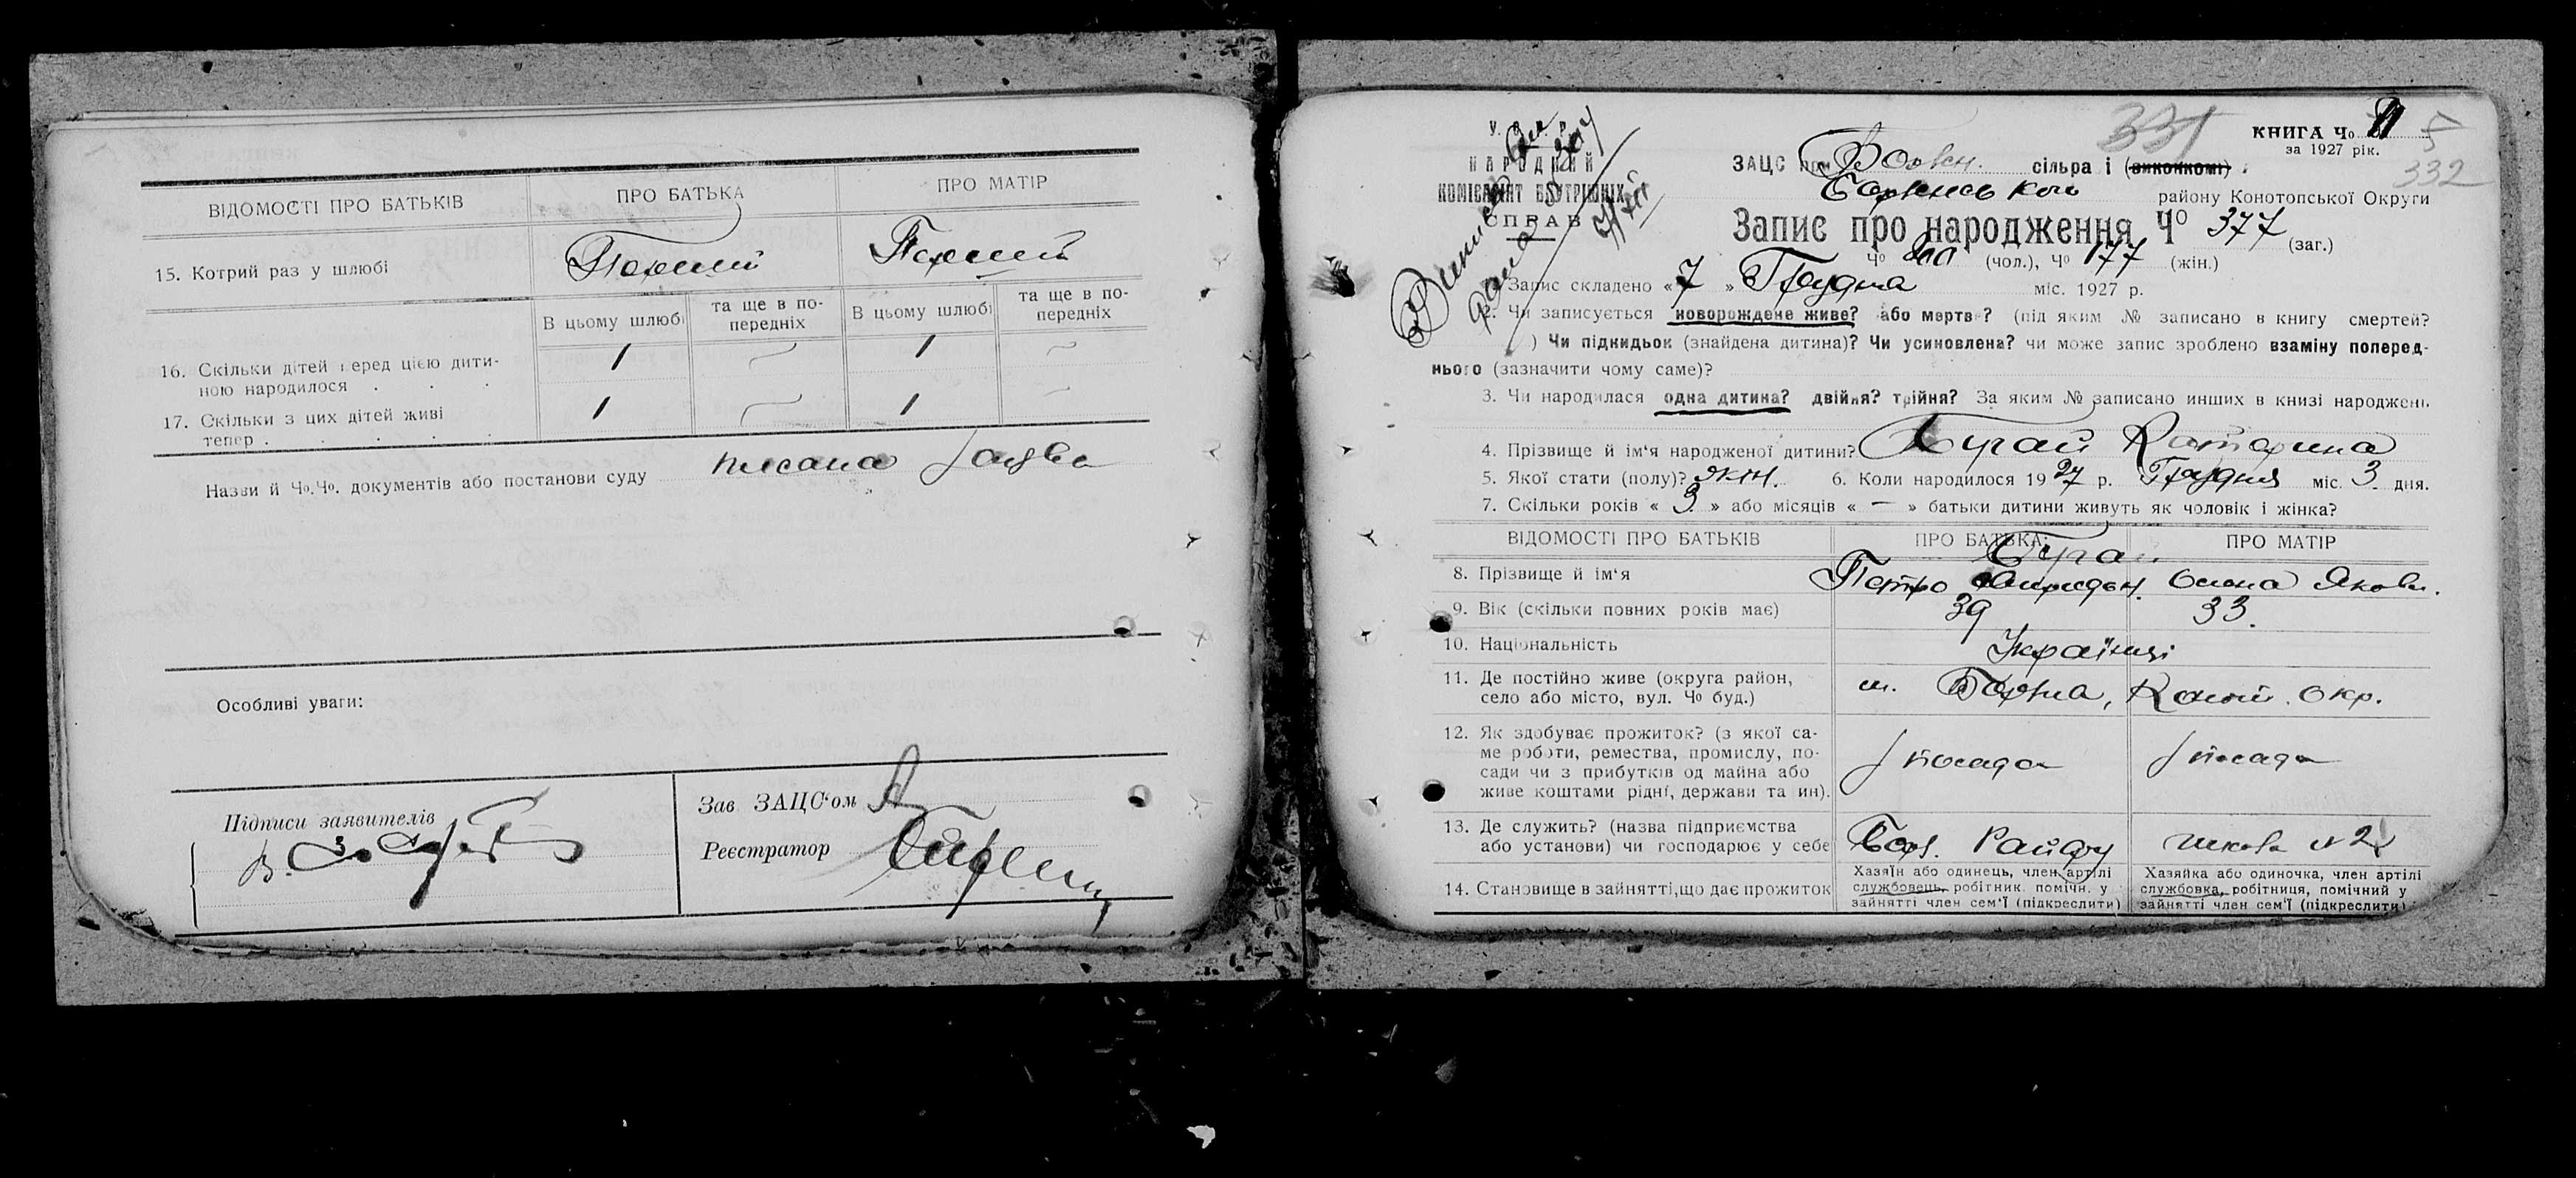 ВІДОМОСТІ ПРО БАТЬКІВ
ПРО БАТЬКА
ПРО МАТІР
15. Котрий раз у шлюбі
Перший
Перший
В цьому шлюбі
та ще в по-
передніх
В цьому шлюбі
та ще в по-
передніх
16. Скільки дітей перед цією дити-
ною народилося . . .
1 — 1 —
17. Скільки з цих дітей живі
тепер . . . . .
1 — 1 —
Назви й Чо.Чо. документів або постанови суду
писана заява
Особливі уваги:
Підписи заявителів
Зав. ЗАЦС'ом
Реєстратор
331
КНИГА Чо
5
за 1927 рік.
332
У. С. Р. Р.
НАРОДНИЙ
КОМІСАРІЯТ ВНУТРІШНІХ
СПРАВ
ЗАЦС при Борзн. сільраді (виконкомі)
Борзенсько району Конотопської Округи
Запис про народження Чо 377 (заг.)
Чо (чол.), Чо 177 (жін.)
Запис складено «7» Грудня міс. 1927 р.
2. Чи записується новорождене живе? або мертве? (під яким № записано в книгу смертей?
) Чи підкидьок (знайдена дитина)? Чи усиновлена? чи може запис зроблено взаміну поперед-
нього (зазначити чому саме)?
3. Чи народилася одна дитина? двійня? трійня? За яким № записано инших в книзі народжень
4. Прізвище й ім'я народженої дитини? Бугай Катерина
5. Якої стати (полу)? жін. 6. Коли народилося 1927 р. Грудня міс. 3 дня.
7. Скільки років «3» або місяців «—» батьки дитини живуть як чоловік і жінка?
ВІДОМОСТІ ПРО БАТЬКІВ
ПРО БАТЬКА
ПРО МАТІР
8. Прізвище й ім'я
Бугаї
Петро Спиридон. Олена Яковл.
9. Вік (скільки повних років має)
39
33.
10. Національність
Українці
11. Де постійно живе (округа район,
село або місто, вул. Чо буд.)
м. Борзна, Коноп. окр.
12. Як здобуває прожиток? (з якої са-
ме роботи, ремества, промислу, по-
сади чи з прибутків од майна або
живе коштами рідні, держави та ин).
з посади
з посади
13. Де служить? (назва підприємства
або установи) чи господарює у себе
Борз. Райфу
школа № 2
14. Становище в зайнятті, що дає прожиток
Хазяїн або одинець, член артілі
службовець, робітник, помічн. у
зайнятті член сем'ї (підкреслити)
Хазяйка або одиночка, член артілі
службовка, робітниця, помічний у
зайнятті член сем'ї (підкреслити)